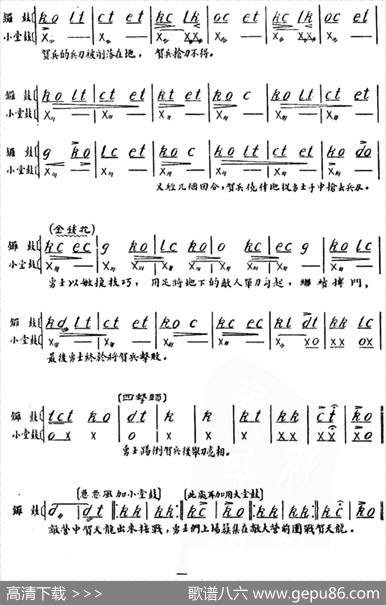 鑼鼓 ko lt | ct et | kc lk | oc et | kc lk | oc et
小堂鼓
賀兵的兵刃被削落在地， 賀兵搶刀不得。
鑼鼓 ko lt | ct et | kt et | ko c | ko lt | ct et
小堂鼓
鑼鼓 g ko | lc et | ko c | ko lt | ct et | ko do
小堂鼓
又經几個回合，賀兵僥倖地從勇士手中搶去兵刃。
(金錢花)
鑼鼓 kc ec | g ko | lc ko | o kc | ec g | ko lc
小堂鼓
勇士以敏捷技巧，用足將地下的敵人單刀勾起，繼續搏鬥，
鑼鼓 kd lt | ct et | ko c | kc ec | kl dt | kk lc
小堂鼓
最後勇士終於將賀兵擊敗。
[四擊頭]
鑼鼓 tct ko | dt | k | k | kt | kk | ct | ko
小堂鼓 o x | x | o | x | x | x | xx | xx | xo
勇士踢倒賀兵後舉刀亮相。
[急急風加小堂鼓] [此處再加用大堂鼓]
鑼鼓 d | dt |: kk | kk :| kc | ko |: kk | kk :| kc | ko
敵營中賀天龍出來接戰，勇士們上場簇集在敵大營前圍戰賀天龍。
高清下载 >>>
歌谱八六 www.gepu86.com